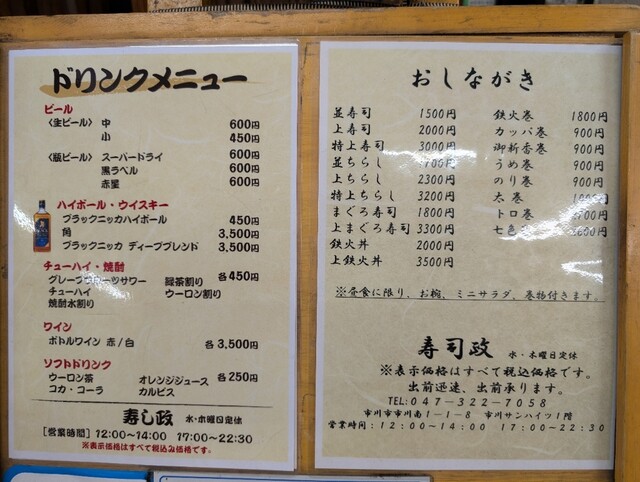 ドリンクメニュー
ビール
〈生ビール〉 中 600円
小 450円
〈瓶ビール〉 スーパードライ 600円
黒ラベル 600円
赤星 600円
ハイボール・ウイスキー
ブラックニッカハイボール 450円
角 3,500円
ブラックニッカ ディープブレンド 3,500円
チューハイ・焼酎
各450円
緑茶割り
チューハイ ウーロン割り
焼酎水割り
ワイン
ボトルワイン 赤/白 各3,500円
ソフトドリンク
各250円
ウーロン茶 オレンジジュース
コカ・コーラ カルピス
寿し政 水・木曜日定休
[営業時間] 12:00～14:00 17:00～22:30
※表示価格はすべて税込み価格です。
おしながき
並寿司 1500円
上寿司 2000円
特上寿司 3000円
並ちらし
上ちらし 2300円
特上ちらし 3200円
まぐろ寿司 1800円
上まぐろ寿司 3300円
鉄火丼 2000円
上鉄火丼 3500円
鉄火巻 1800円
カッパ巻 900円
御新香巻 900円
うめ巻 900円
のり巻 900円
太巻
トロ巻
七色
※昼食に限り、お椀、ミニサラダ、巻物付きます。
寿司政 水・木曜日定休
※表示価格はすべて税込価格です。
出前迅速、出前承ります。
TEL:047-322-7058
市川市市川南1-1-8 市川サンハイツ1階
営業時間:12:00～14:00 17:00～22:30